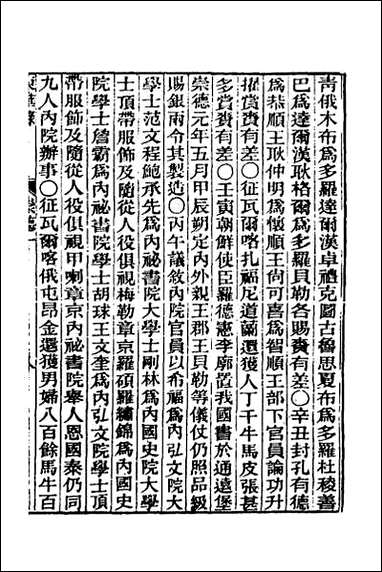 青俄木布為多羅達爾漢卓禮克圖古魯思夏布為多羅杜稜善
巴為達爾漢耿格爾為多羅貝勒各賜賚有差○辛丑封孔有德
為恭順王耿仲明為懷順王尚可喜為智順王部下官員論功升
擢賞賚有差○征瓦爾喀扎福尼道蘭還獲人丁千牛馬皮張甚
多賞賚有差○壬寅朝鮮使臣羅德憲李廓置我國書於通遠堡
崇德元年五月甲辰朔定內外親王郡王貝勒等儀仗仍照品級
賜銀兩令其製造○丙午議敘內院官員以希福為內弘文院大
學士范文程鮑承先為內祕書院大學士剛林為內國史院大學
士頂帶服飾及隨從人役俱視梅勒章京羅碩羅繡錦為內國史
院學士詹霸為內祕書院學士胡球王文奎為內弘文院學士頂
帶服飾及隨從人役俱視甲喇章京內祕書院舉人恩國泰仍同
九人內院辦事○征瓦爾喀俄屯昂金還獲男婦八百餘馬牛百